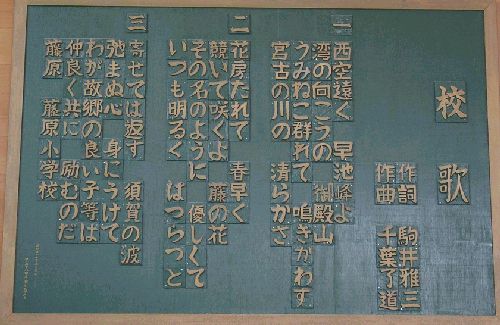 校歌
作詞 駒井雅三
作曲 千葉了道
一 西空遠く 早池峰よ
湾の向こうの 御殿山
うみねこ群れて 鳴きかわす
宮古の川の 清らかさ
二 花房たれて 春早く
競いて咲くよ 藤の花
その名のように 優しくて
いつも明るく はつらつと
三 寄せては返す 須賀の波
弛まぬ心 身にうけて
わが故郷の 良い子等は
仲良く共に 励むのだ
藤原 藤原小学校